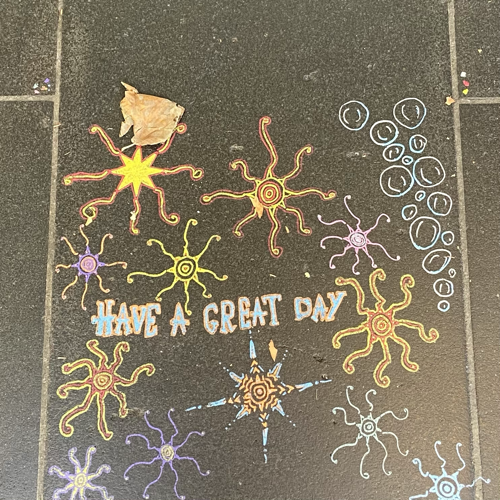 HAVE A GREAT DAY